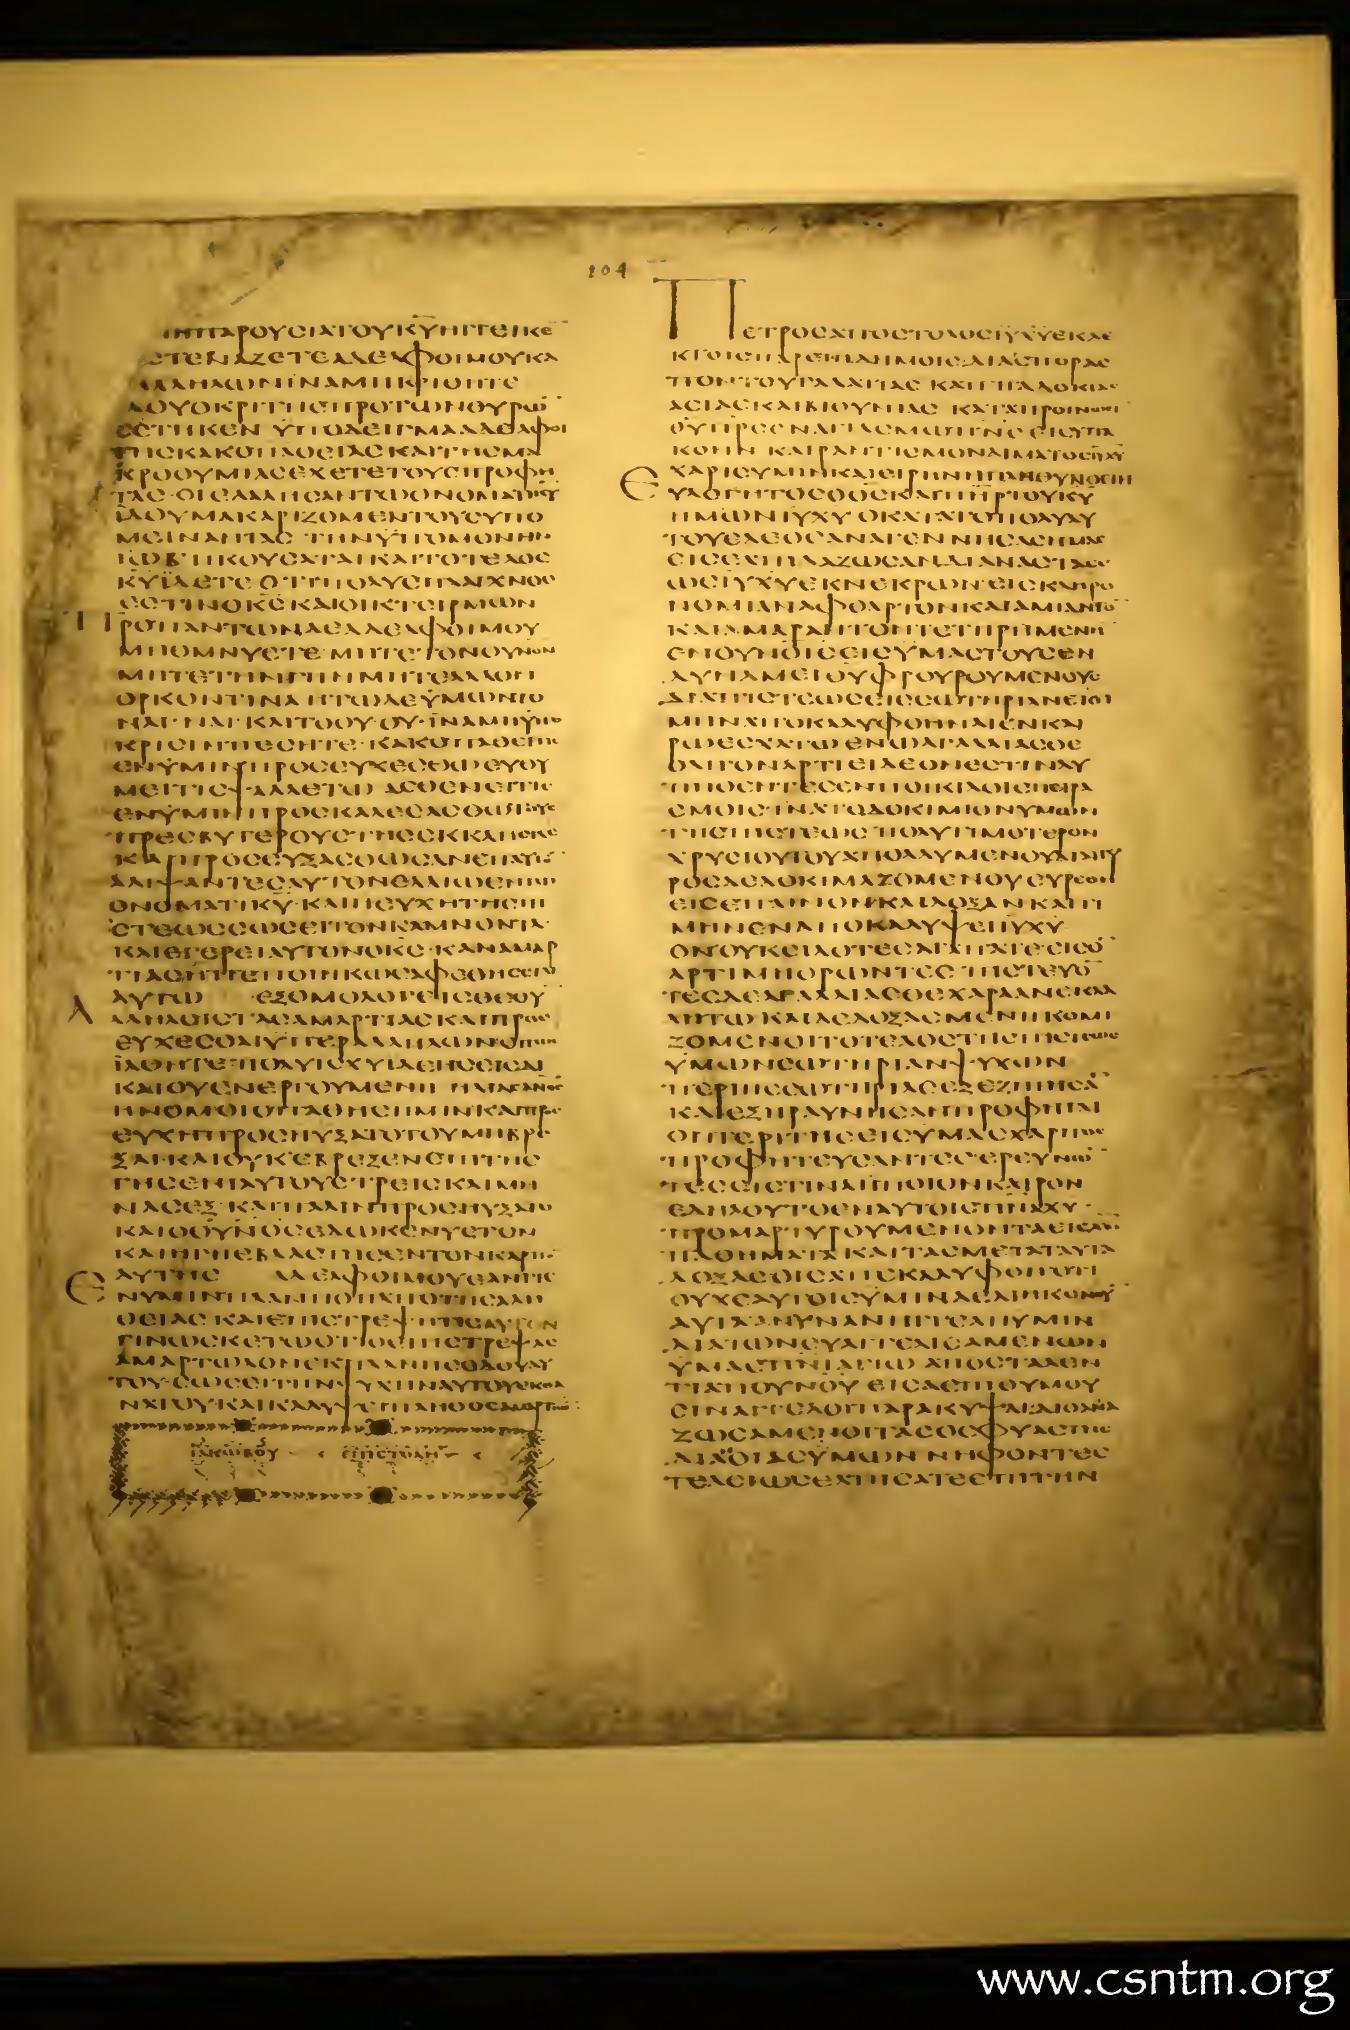 104
ΗΠΑΡΟΥΣΙΑΤΟΥΚΥΗΓΓΕΙΚΕ
ΣΤΕΝΑΖΕΤΕΑΔΕΛΦΟΙΜΟΥΚΑ
ΑΛΛΗΛΩΝΙΝΑΜΗΚΡΙΘΗΤΕ
ΔΟΥΟΚΡΙΤΗΣΠΡΟΤΩΝΘΥΡΩ
ΕΣΤΗΚΕΝ ΥΠΟΔΕΙΓΜΑΑΔΕΛΦΟΙ
ΤΗΣΚΑΚΟΠΑΘΕΙΑΣΚΑΙΤΗΣΜΑ
ΚΡΟΘΥΜΙΑΣΕΧΕΤΕΤΟΥΣΠΡΟΦΗ
ΤΑΣ ΟΙΕΛΑΛΗΣΑΝΤΩΟΝΟΜΑΤΙΚΥ
ΙΔΟΥΜΑΚΑΡΙΖΟΜΕΝΤΟΥΣΥΠΟ
ΜΕΙΝΑΝΤΑΣ ΤΗΝΥΠΟΜΟΝΗΝ
ΙΩΒ ΗΚΟΥΣΑΤΑΙΚΑΙΤΟΤΕΛΟΣ
ΚΥΙΔΕΤΕ ΟΤΙΠΟΛΥΣΠΛΑΓΧΝΟΣ
ΕΣΤΙΝΟΚΣΚΑΙΟΙΚΤΕΙΡΜΩΝ
ΠΡΟΠΑΝΤΩΝΔΕΑΔΕΛΦΟΙΜΟΥ
ΜΗΟΜΝΥΕΤΕ ΜΗΤΕΤΟΝΟΥΝΟΝ
ΜΗΤΕΤΗΝΓΗΝΜΗΤΕΑΛΛΟΝ
ΟΡΚΟΝΤΙΝΑ ΗΤΩΔΕΥΜΩΝΤΟ
ΝΑΙ ΝΑΙ ΚΑΙΤΟΟΥ ΟΥ ΙΝΑΜΗΥΠΟ
ΚΡΙΣΙΝΠΕΣΗΤΕ ΚΑΚΟΠΑΘΕΙΤΙΣ
ΕΝΥΜΙΝΠΡΟΣΕΥΧΕΣΘΩ ΕΥΘΥ
ΜΕΙΤΙΣΨΑΛΛΕΤΩ ΑΣΘΕΝΕΙΤΙΣ
ΕΝΥΜΙΝΠΡΟΣΚΑΛΕΣΑΣΘΩΤΟΥΣ
ΠΡΕΣΒΥΤΕΡΟΥΣΤΗΣΕΚΚΛΗΣΙΑΣ
ΚΑΙΠΡΟΣΕΥΞΑΣΘΩΣΑΝΕΠΑΥΤΟ
ΑΛΙΨΑΝΤΕΣΑΥΤΟΝΕΛΑΙΩΕΝΤΩ
ΟΝΟΜΑΤΙΚΥ ΚΑΙΗΕΥΧΗΤΗΣΠΙ
ΣΤΕΩΣΣΩΣΕΙΤΟΝΚΑΜΝΟΝΤΑ
ΚΑΙΕΓΕΡΕΙΑΥΤΟΝΟΚΣ ΚΑΝΑΜΑΡ
ΤΙΑΣΗΠΕΠΟΙΗΚΩΣΑΦΕΘΗΣΕΤΑΙ
ΑΥΤΩ ΕΞΟΜΟΛΟΓΕΙΣΘΕΟΥ
ΑΛΛΗΛΟΙΣΤΑΣΑΜΑΡΤΙΑΣΚΑΙΠΡΟΣ
ΕΥΧΕΣΘΑΙΥΠΕΡΑΛΛΗΛΩΝΟΠΩΣ
ΙΑΘΗΤΕ ΠΟΛΥΙΣΧΥΙΔΕΗΣΕΙΣΔΙ
ΚΑΙΟΥΕΝΕΡΓΟΥΜΕΝΗ ΗΛΙΑΣΑΝΟΣ
ΗΝΟΜΟΙΟΠΑΘΗΣΗΜΙΝΚΑΙΠΡΟΣ
ΕΥΧΗΠΡΟΣΗΥΞΑΤΟΤΟΥΜΗΒΡΕ
ΞΑΙ ΚΑΙΟΥΚΕΒΡΕΞΕΝΕΠΙΤΗΣ
ΓΗΣΕΝΙΑΥΤΟΥΣΤΡΕΙΣΚΑΙΜΗ
ΝΑΣΕΞ ΚΑΙΠΑΛΙΝΠΡΟΣΗΥΞΑΤΟ
ΚΑΙΟΟΥΝΟΣΕΔΩΚΕΝΥΕΤΟΝ
ΚΑΙΗΓΗΕΒΛΑΣΤΗΣΕΝΤΟΝΚΑΡΠΟ
ΑΥΤΗΣ ΑΔΕΛΦΟΙΜΟΥΕΑΝΤΙΣ
ΕΝΥΜΙΝΠΛΑΝΗΘΗΑΠΟΤΗΣΑΛΗ
ΘΕΙΑΣ ΚΑΙΕΠΙΣΤΡΕΨΗΤΙΣΑΥΤΟΝ
ΓΙΝΩΣΚΕΤΩΟΤΙΟΕΠΙΣΤΡΕΨΑΣ
ΑΜΑΡΤΩΛΟΝΕΚΠΛΑΝΗΣΟΔΟΥΑΥ
ΤΟΥ ΣΩΣΕΙΤΗΝΨΥΧΗΝΑΥΤΟΥΕΚΘΑ
ΝΑΤΟΥΚΑΙΚΑΛΥΨΕΙΠΛΗΘΟΣΑΜΑΡΤΙΩ
ΙΑΚΩΒΟΥ ΕΠΙΣΤΟΛΗ
ΠΕΤΡΟΣΑΠΟΣΤΟΛΟΣΙΥΧΥΕΚΛΕ
ΚΤΟΙΣΠΑΡΕΠΙΔΗΜΟΙΣΔΙΑΣΠΟΡΑΣ
ΠΟΝΤΟΥΓΑΛΑΤΙΑΣ ΚΑΠΠΑΔΟΚΙΑΣ
ΑΣΙΑΣΚΑΙΒΙΘΥΝΙΑΣ ΚΑΤΑΠΡΟΓΝΩΣΙ
ΘΥΠΡΣΕΝΑΓΙΑΣΜΩΠΝΣ ΕΙΣΥΠΑ
ΚΟΗΝ ΚΑΙΡΑΝΤΙΣΜΟΝΑΙΜΑΤΟΣΙΥΧΥ
ΧΑΡΙΣΥΜΙΝΚΑΙΕΙΡΗΝΗΠΛΗΘΥΝΘΕΙΗ
ΕΥΛΟΓΗΤΟΣΟΘΣΚΑΙΠΗΡΤΟΥΚΥ
ΗΜΩΝΙΥΧΥ ΟΚΑΤΑΤΟΠΟΛΥΑΥ
ΤΟΥΕΛΕΟΣΑΝΑΓΕΝΝΗΣΑΣΗΜΑΣ
ΕΙΣΕΛΠΙΔΑΖΩΣΑΝΔΙΑΝΑΣΤΑΣΕ
ΩΣΙΥΧΥΕΚΝΕΚΡΩΝ ΕΙΣΚΛΗΡΟ
ΝΟΜΙΑΝΑΦΘΑΡΤΟΝΚΑΙΑΜΙΑΝΤΟ
ΚΑΙΑΜΑΡΑΝΤΟΝΤΕΤΗΡΗΜΕΝΗ
ΕΝΟΥΝΟΙΣΕΙΣΥΜΑΣΤΟΥΣΕΝ
ΔΥΝΑΜΕΙΘΥΦΡΟΥΡΟΥΜΕΝΟΥΣ
ΔΙΑΠΙΣΤΕΩΣΕΙΣΣΩΤΗΡΙΑΝΕΤΟΙ
ΜΗΝΑΠΟΚΑΛΥΦΘΗΝΑΙΕΝΚΑΙ
ΡΩΕΣΧΑΤΩ ΕΝΩΑΓΑΛΛΙΑΣΘΕ
ΟΛΙΓΟΝΑΡΤΙΕΙΔΕΟΝΕΣΤΙΝΛΥ
ΠΗΘΕΝΤΕΣΕΝΠΟΙΚΙΛΟΙΣΠΕΙΡΑ
ΣΜΟΙΣ ΙΝΑΤΟΔΟΚΙΜΙΟΝΥΜΩΝ
ΤΗΣΠΙΣΤΕΩΣ ΠΟΛΥΤΙΜΟΤΕΡΟΝ
ΧΡΥΣΙΟΥΤΟΥΑΠΟΛΛΥΜΕΝΟΥΔΙΑΠΥ
ΡΟΣΔΕΔΟΚΙΜΑΖΟΜΕΝΟΥ ΕΥΡΕΘΗ
ΕΙΣΕΠΑΙΝΟΝΚΑΙΔΟΞΑΝΚΑΙΤΙ
ΜΗΝΕΝΑΠΟΚΑΛΥΨΕΙΙΥΧΥ
ΟΝΟΥΚΕΙΔΟΤΕΣΑΓΑΠΑΤΕΕΙΣΟ
ΑΡΤΙΜΗΟΡΩΝΤΕΣ ΠΙΣΤΕΥΟ
ΤΕΣΔΕΑΓΑΛΛΙΑΣΘΕΧΑΡΑΑΝΕΚΛΑ
ΛΗΤΩ ΚΑΙΔΕΔΟΞΑΣΜΕΝΗΚΟΜΙ
ΖΟΜΕΝΟΙΤΟΤΕΛΟΣΤΗΣΠΙΣΤΕΩΣ
ΥΜΩΝΣΩΤΗΡΙΑΝΨΥΧΩΝ
ΠΕΡΙΗΣΣΩΤΗΡΙΑΣΕΞΕΖΗΤΗΣΑ
ΚΑΙΕΞΗΡΑΥΝΗΣΑΝΠΡΟΦΗΤΑΙ
ΟΙΠΕΡΙΤΗΣΕΙΣΥΜΑΣΧΑΡΙΤΟΣ
ΠΡΟΦΗΤΕΥΣΑΝΤΕΣ ΕΡΕΥΝΩ
ΤΕΣΕΙΣΤΙΝΑΗΠΟΙΟΝΚΑΙΡΟΝ
ΕΔΗΛΟΥΤΟΕΝΑΥΤΟΙΣΠΝΑΧΥ
ΠΡΟΜΑΡΤΥΡΟΥΜΕΝΟΝΤΑΕΙΣΧΝ
ΠΑΘΗΜΑΤΑ ΚΑΙΤΑΣΜΕΤΑΤΑΥΤΑ
ΔΟΞΑΣΟΙΣΑΠΕΚΑΛΥΦΘΗΟΤΙ
ΟΥΧΕΑΥΤΟΙΣΥΜΙΝΔΕΔΙΗΚΟΝΟΥ
ΑΥΤΑΑΝΥΝΑΝΗΓΓΕΛΗΥΜΙΝ
ΔΙΑΤΩΝΕΥΑΓΓΕΛΙΣΑΜΕΝΩΝ
ΥΜΑΣΠΝΙΑΓΙΩ ΑΠΟΣΤΑΛΕΝ
ΤΙΑΠΟΥΝΟΥ ΕΙΣΑΕΠΙΘΥΜΟΥ
ΣΙΝΑΓΓΕΛΟΙΠΑΡΑΚΥΨΑΙΔΙΟΑΝΑ
ΖΩΣΑΜΕΝΟΙΤΑΣΟΣΦΥΑΣΤΗΣ
ΔΙΑΝΟΙΑΣΥΜΩΝ ΝΗΦΟΝΤΕΣ
ΤΕΛΕΙΩΣΕΛΠΙΣΑΤΕΕΠΙΤΗΝ
www.csntm.org